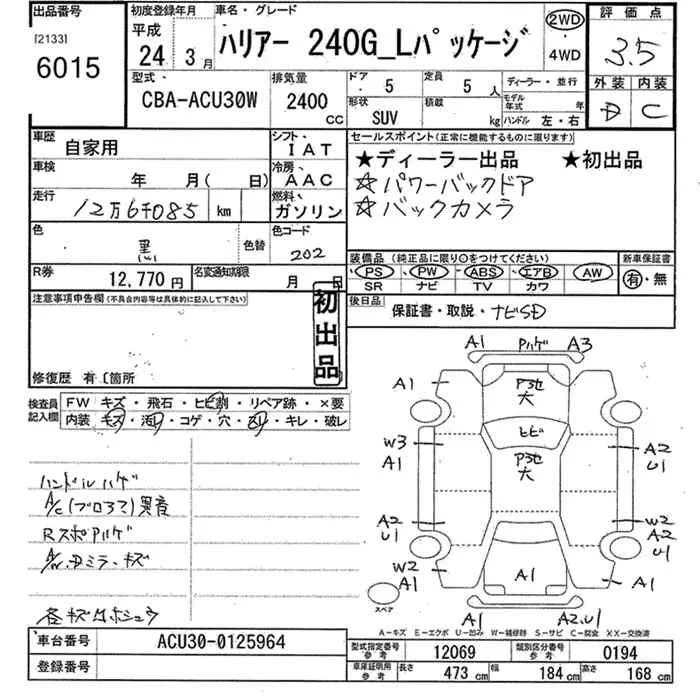 出品番号
[2133]
6015
初度登録年月
平成
24年 3月
車名・グレード
ハリアー 240G_Lパッケージ
2WD
・
4WD
評価点
3.5
外装 内装
D C
型式、
CBA-ACU30W
排気量
2400
CC
ドア・ 5
定員 5人
形状 SUV
積載 kg
ディーラー・並行
モデル年式 年
ハンドル 左・右
車歴
自家用
シフト、
IAT
車検
年 月( 日)
冷房、
AAC
走行
12万6千085 km
燃料、
ガソリン
色
黒
色替
色コード
202
R券
12,770円
名変通知期限
月 日
セールスポイント(正常に機能するものに限ります)
★ディーラー出品 ★初出品
☆パワーバックドア
☆バックカメラ
装備品(純正品に限り○をつけてください)
PS PW ABS エアB AW
SR ナビ TV カワ
新車保証書
有・無
後日品
保証書・取説・ナビSD
注意事項申告欄(不具合内容等は具体的に記入して下さい)
初出品
修復歴 有 〔箇所
検査員記入欄
FW キズ・飛石・ヒビ割・リペア跡・×要
内装 キズ・汚れ・コゲ・穴・スリ・キレ・破レ
ハンドルハゲ
A/C(ブロアで)異音
RスポAハゲ
ミラーキズ
各キズ
A1 Pハゲ A3
A1
P地
大
ヒビ
W3
A1
P地
大
A2
U1
A2
U1
W2
A2
U1
W2
A1
A1
A1
スペア
A1 A2.U1
A-キズ E-エクボ U-凹み W-補修跡 S-サビ C-腐食 XX-交換済
車台番号
ACU30-0125964
登録番号
型式指定番号
参考
12069
類別区分番号
参考
0194
車庫証明用
参考
長さ 473 cm
幅 184 cm
高さ 168 cm